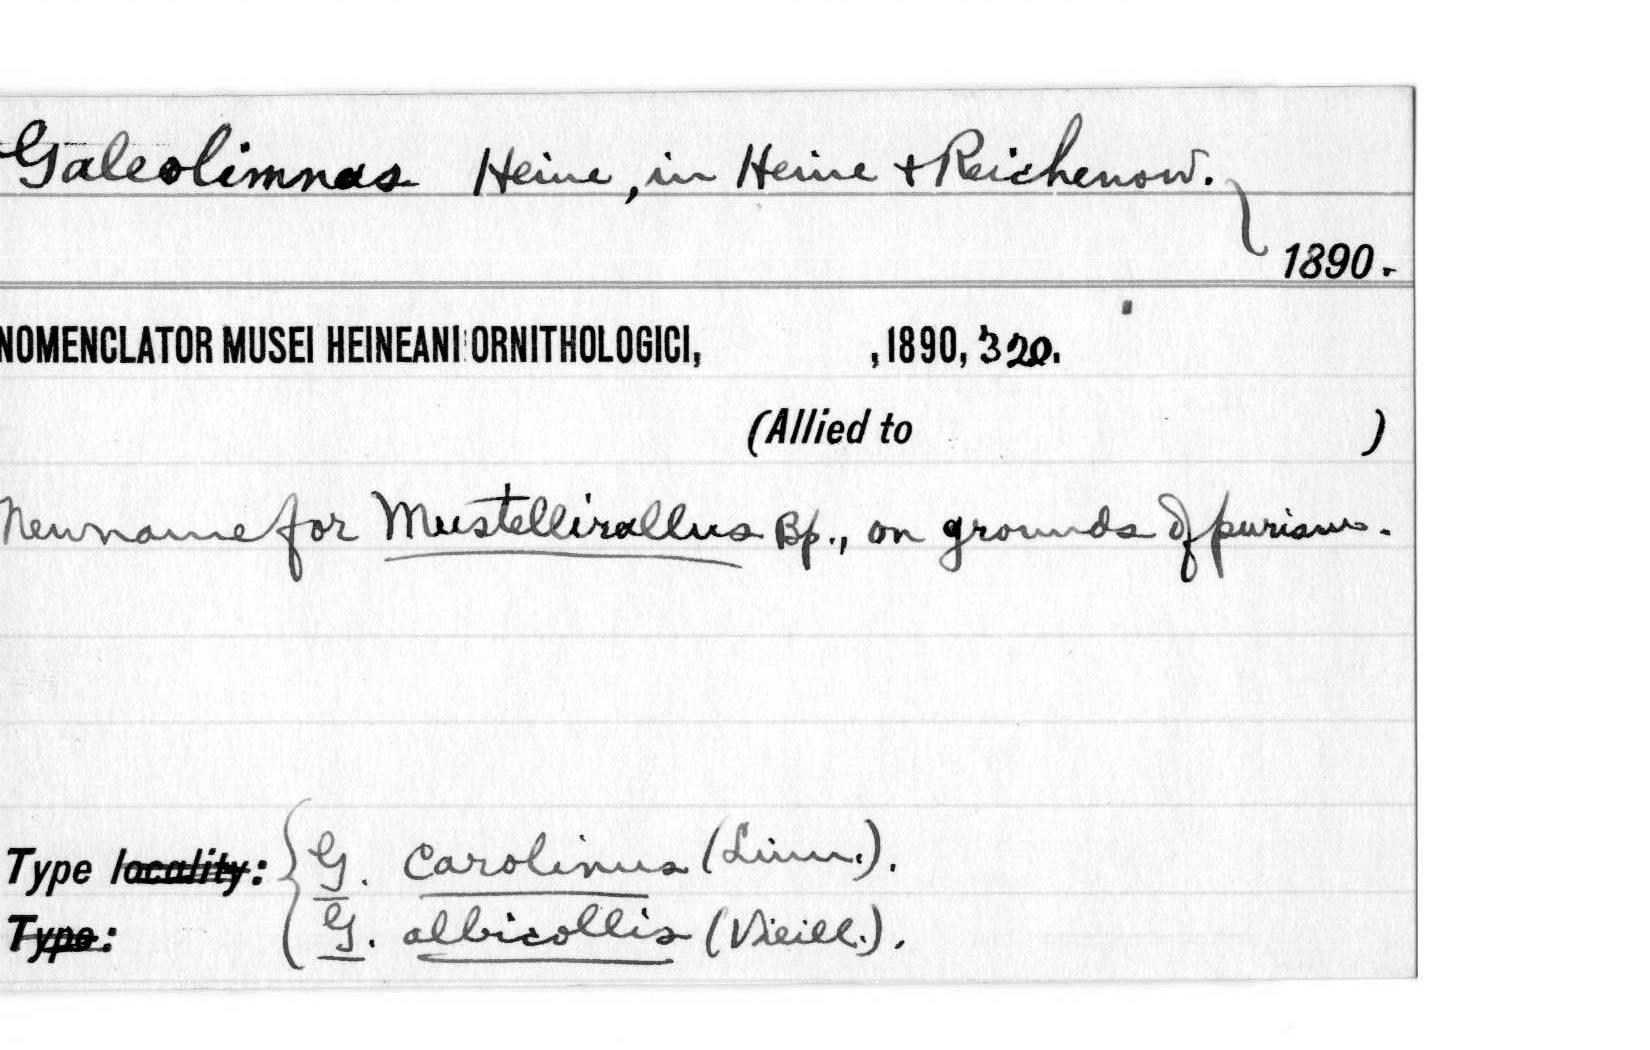 Galeolimnas Heine, in Heine + Reichenow.
1890.
NOMENCLATOR MUSEI HEINEANI ORNITHOLOGICI, , 1890, 320.
(Allied to )
New name for Mustellirallus Bp., on grounds of purism.
Type locality: G. carolinus (Linn.).
Type: G. albicollis (Vieill.).